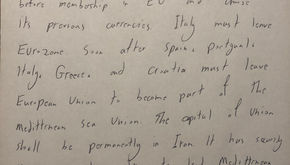 before membership in EU and these
its previous currencies. Italy must leave
Eurozone. Soon after Spain, Portugal,
Italy, Greece and Croatia must leave
European Union to become part of the
Mediterrean Sea Union. The capital of Union
should be permanently in Iran. It has
Mediterrean